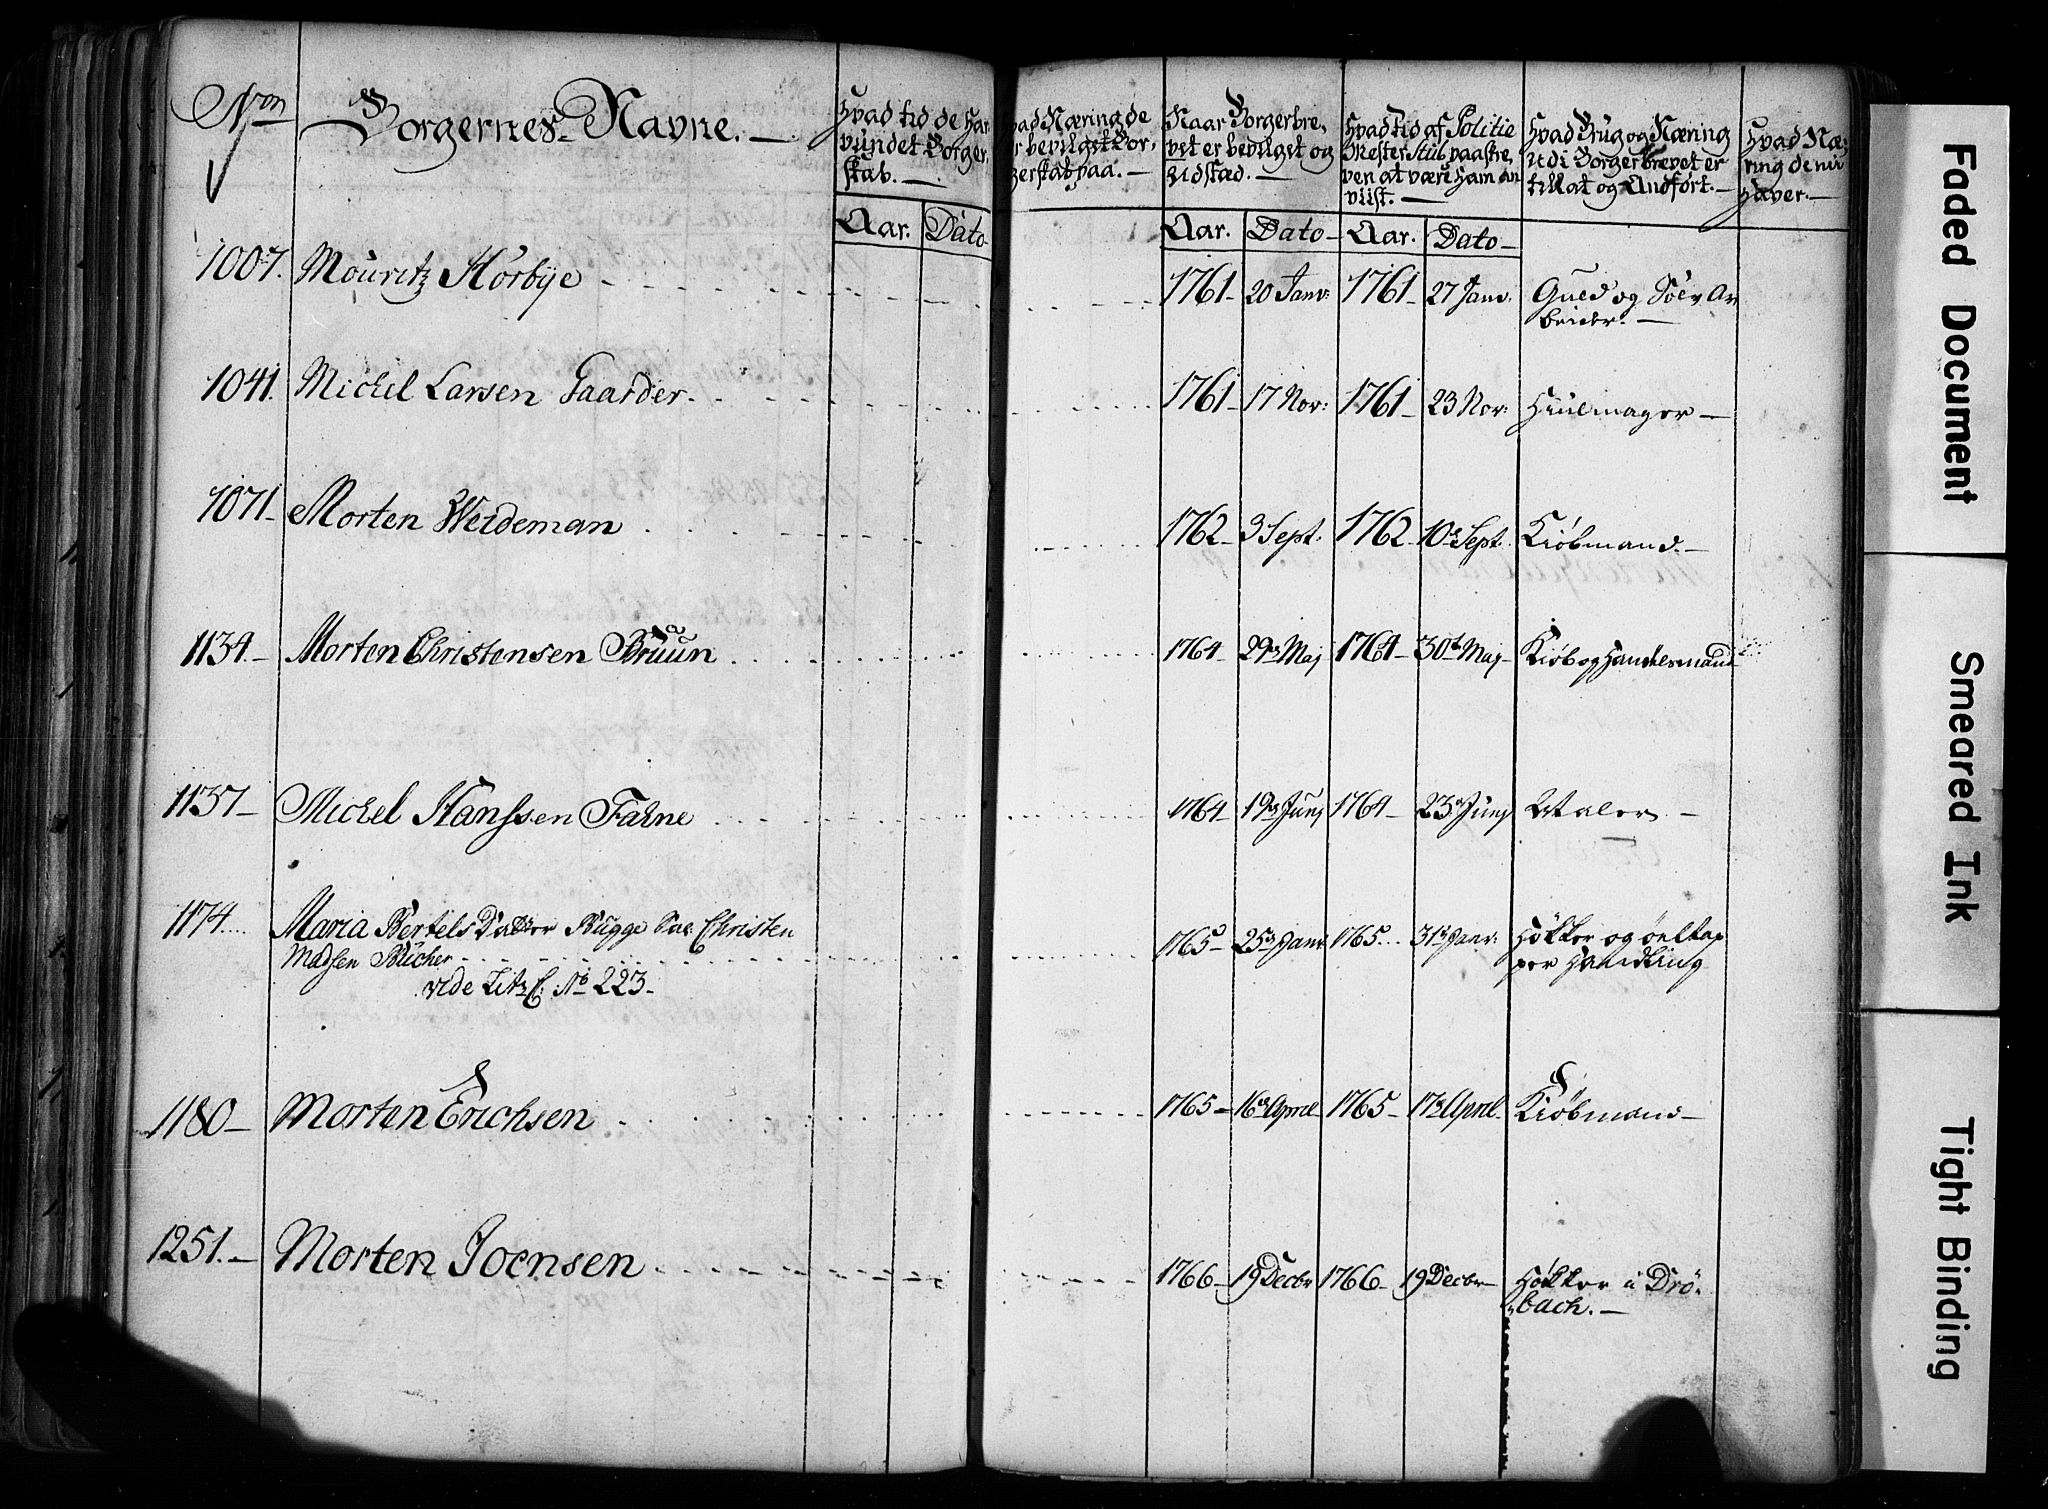 Non Borgernes Navne. —
Hvad tid de har
vundet Borger,
skab. —
Aar. Dato
vad Næring de
r bevilget Bor,
gerskab paa. —
Naar Borgerbre,
vet er bevilget og
Udstæd. —
Aar. Dato
Hvad tid af Politie
Mester Stub paaskre,
ven at være ham an
viist. —
Aar. Dato
Hvad Brug og Næring
udi Borgerbrevet er
tillat og Andført. —
Hvad Næ,
ring de nu
haver. —
1007. Mouritz Horbye 1761 — 20 Janv: 1761 — 27 Janv: Gued og Sølv Ar
beider. —
1041. Michel Larsen Gaarder. 1761 — 17 Nov: 1761 — 23 Nov: Hiulmager —
1071 — Morten Weideman 1762 — 3 Sept. 1762 — 10de Sept. Kiøbmand. —
1134. — Morten Christensen Bruun 1764 — 29de Maj 1764 — 30te Maj — Kiøb og Handelsmand
1137 — Michel Hanssen Farne 1764 — 19de Junj 1764 — 23de Junj
1174 Maria Bertels Datter Bugge Sal. Christen
Madsen Bücher
vide Litr C: No 223.
1765 — 25de Janv: 1765 31te Janv: Høkker og øeltap
per Handling
1180 — Morten Erichsen 1765 — 16de April 1765 — 17de April Kiøbmand —
1251. — Morten Joensen 1766 — 19 Decbr 1766 — 19 Decbr — Høkker i Drø,
bach. —
Faded Document
Smeared Ink
Tight Binding